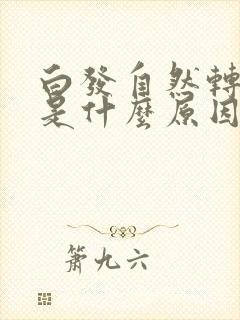 白發自然轉
是什麼原因
簫九六